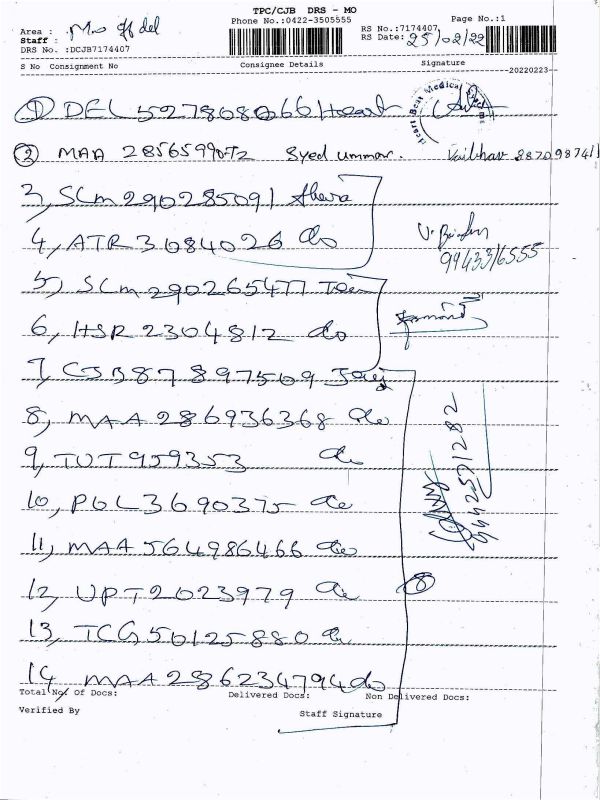 TPC/CJB DRS - MO
Phone No.:0422-3505555
Page No.:1
Area : Mo off del
Staff :
DRS No. :DCJB7174407
RS No.:7174407
RS Date: 25/02/22
S No Consignment No Consignee Details Signature
20220223
① DEL527808066 Heart
Heart Beat Medical
② MAA 285659907 Syed ummar. Vaibhav 8870987411
3, SCM290285091
4, ATR3084026 do
9943316555
5, SCM290265477
6, HSR 2304812 do
7, CJB87897509
8, MAA286936368 do
9, TUT959353 do
9442571282
10, PGL3690375 do
11, MAA564986466 do
12, UPT2023979 do
⑧
13, TCG50125880 do
14, MAA286234794 do
Total No. Of Docs: Delivered Docs: Non Delivered Docs:
Verified By Staff Signature